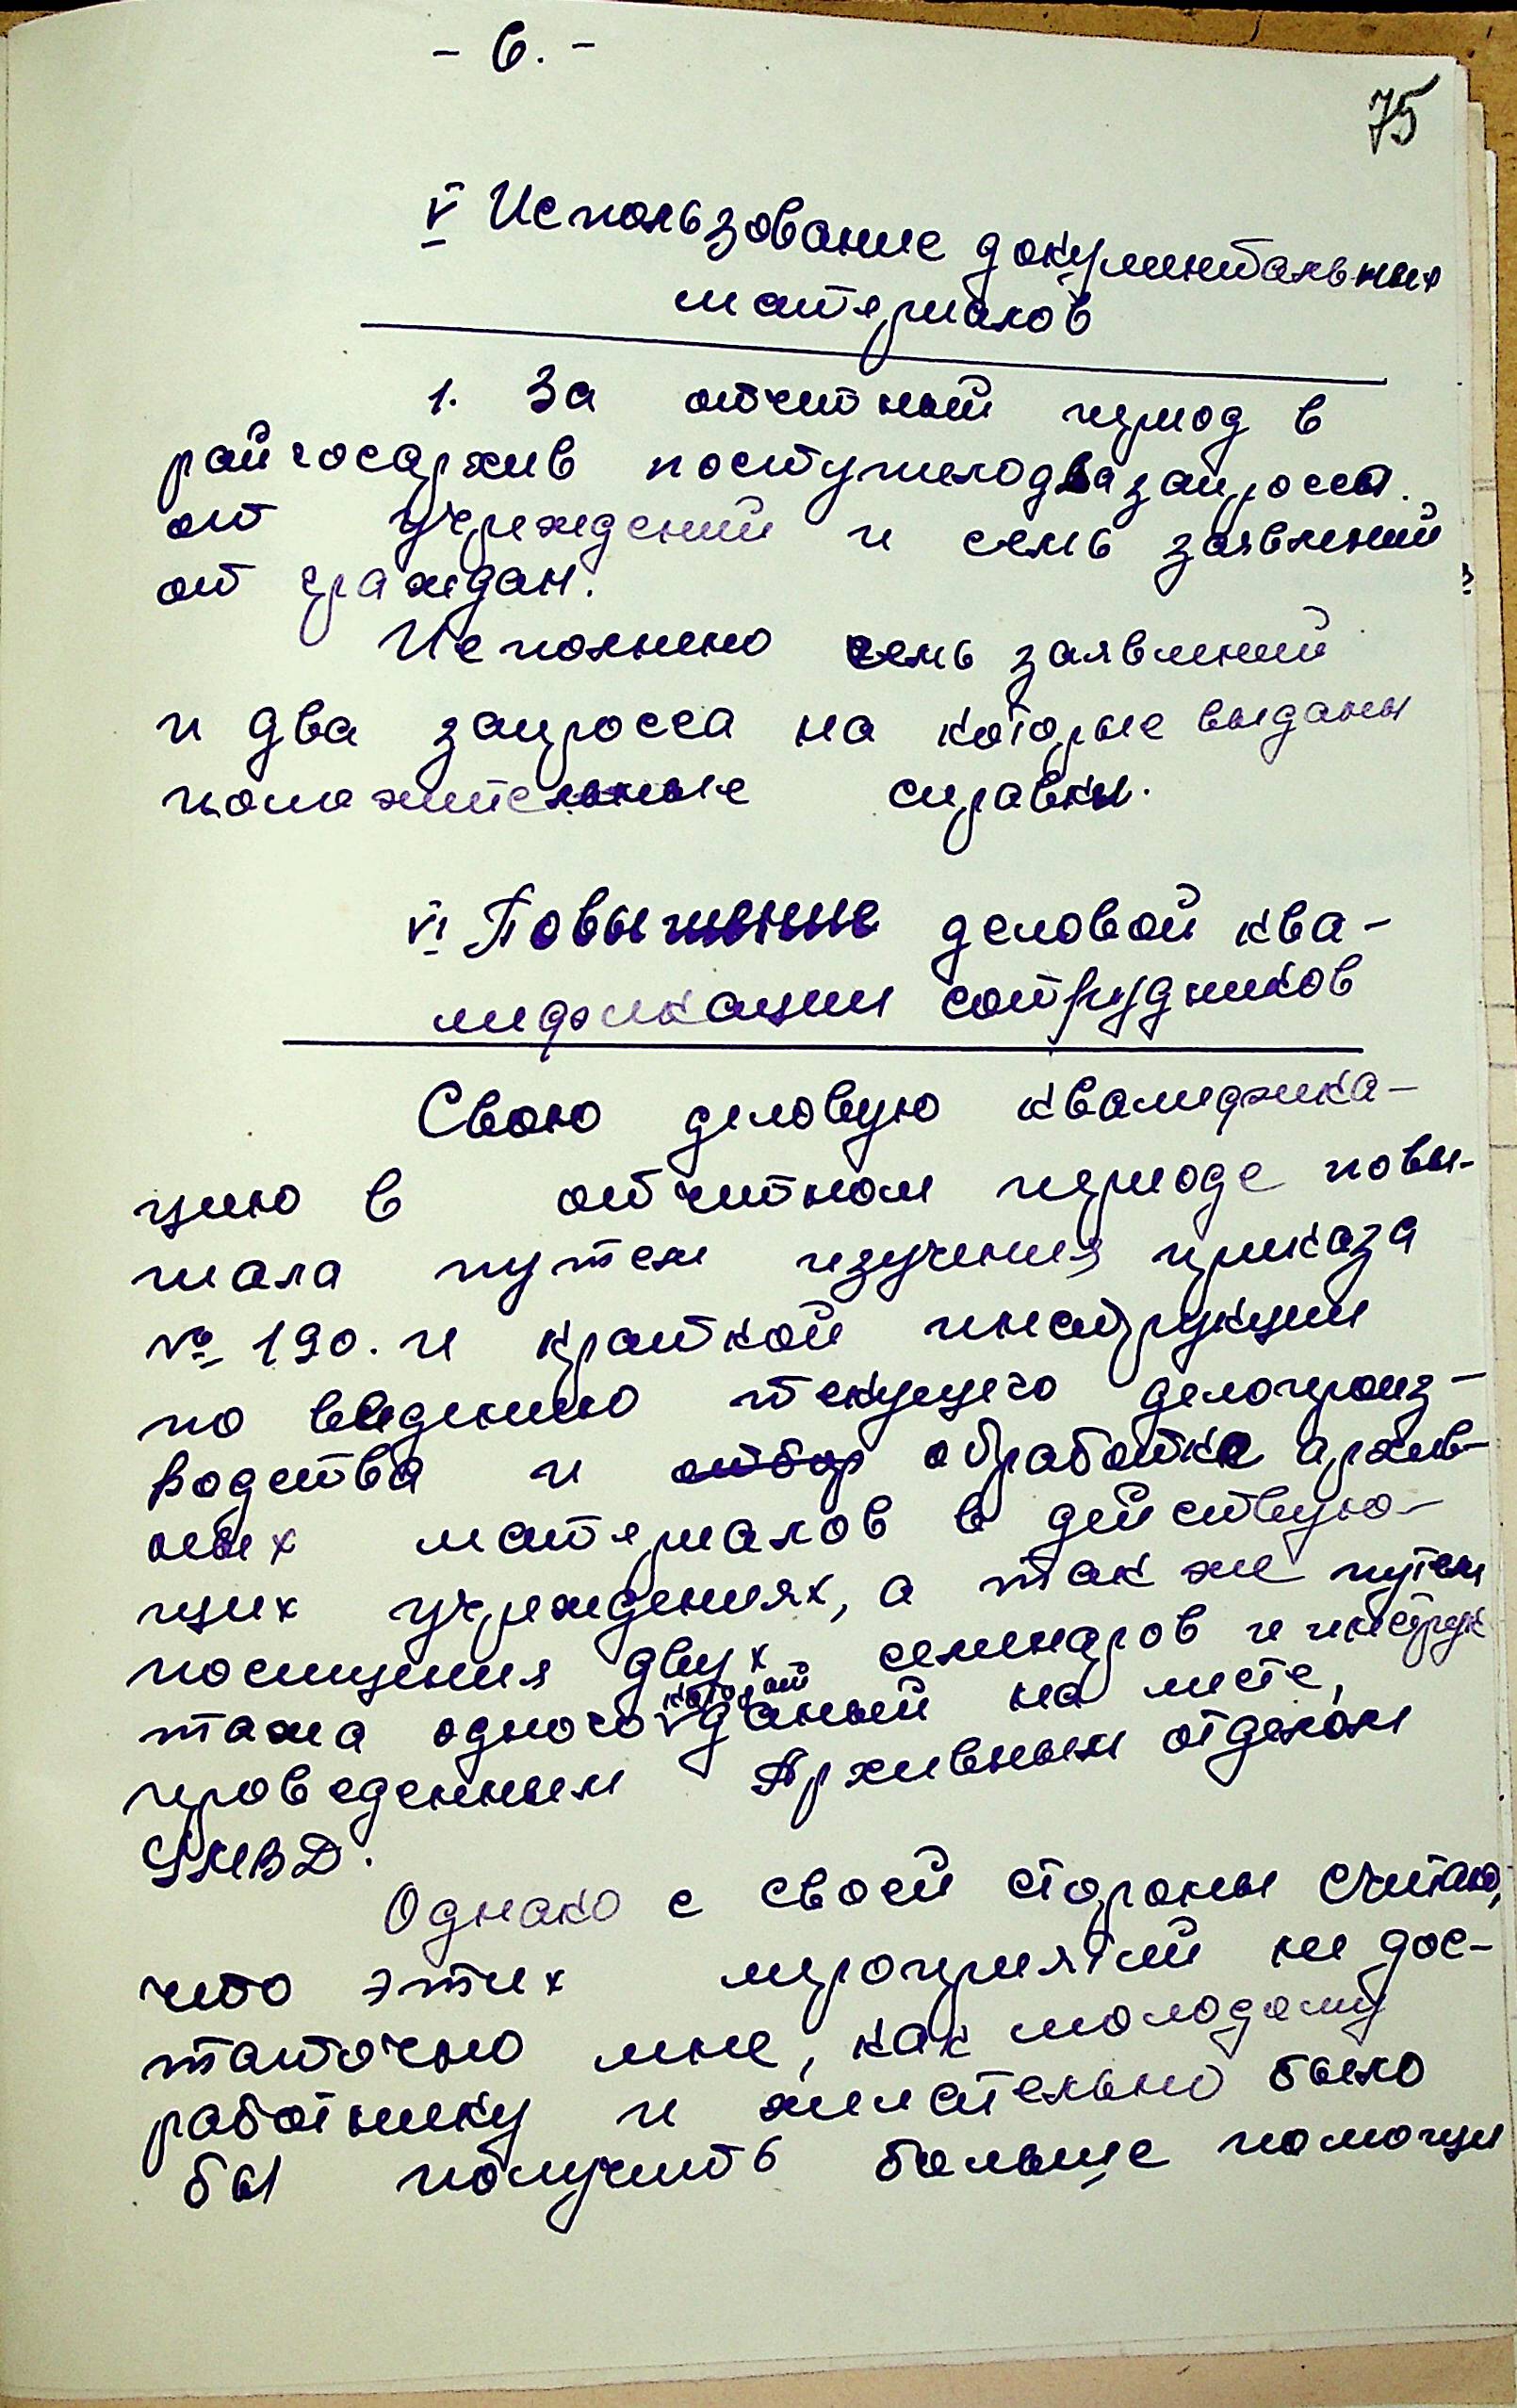 - 6. -
75
V Использование документальных
материалов
1. За отчетный период в
райгосархив поступило два запросса.
от учреждений и семь заявлений
от граждан.
Исполнено семь заявлений
и два запросса на которые выданы
положительные справки.
VI Повышение деловой ква-
лификации сотрудников
Свою деловую квалифика-
цию в отчетном периоде повы-
шала путем изучения приказа
№ 190. и краткой инструкции
по введению текущего делопроиз-
водства и отбор обработке архив-
ных материалов в действую-
щих учреждениях, а так же путем
посещения двух семинаров и инструк
тажа одного который даный на месте,
проведенным Архивным отделом
УМВД.
Однако с своей стороны считаю,
что этих мероприятий не дос-
таточно мне, как молодому
работнику и желательно было
бы получить больше помощи